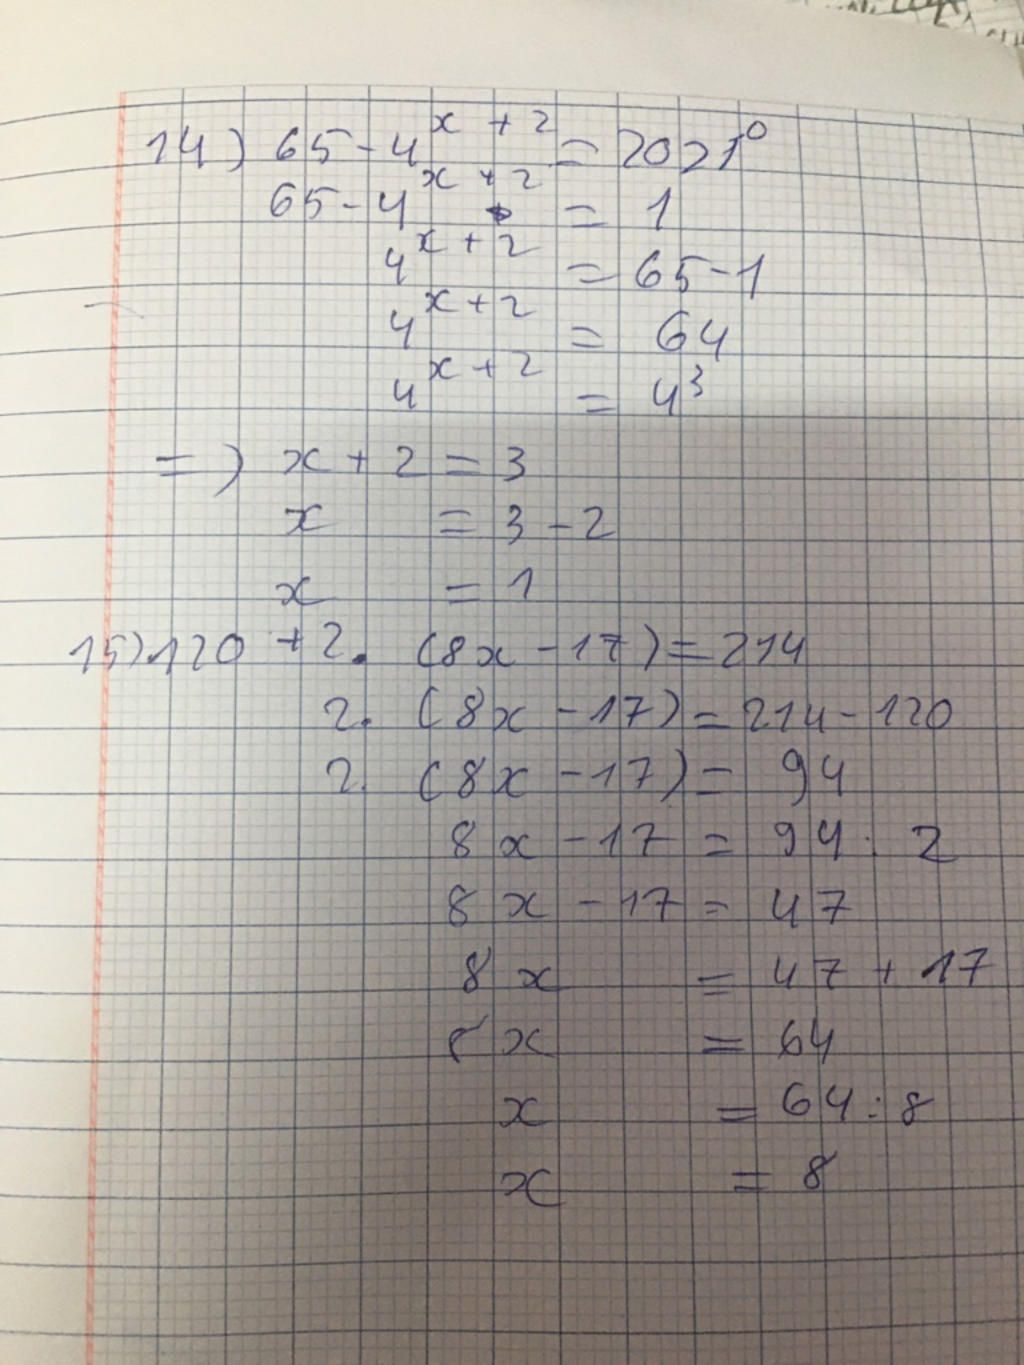 14) 65 - 4^{x + 2} = 2021^0
65 - 4^{x + 2} = 1
4^{x + 2} = 65 - 1
4^{x + 2} = 64
4^{x + 2} = 4^3
=) x + 2 = 3
x = 3 - 2
x = 1
15) 120 + 2. (8x - 17) = 214
2. (8x - 17) = 214 - 120
2. (8x - 17) = 94
8x - 17 = 94 : 2
8x - 17 = 47
8x = 47 + 17
8x = 64
x = 64 : 8
x = 8